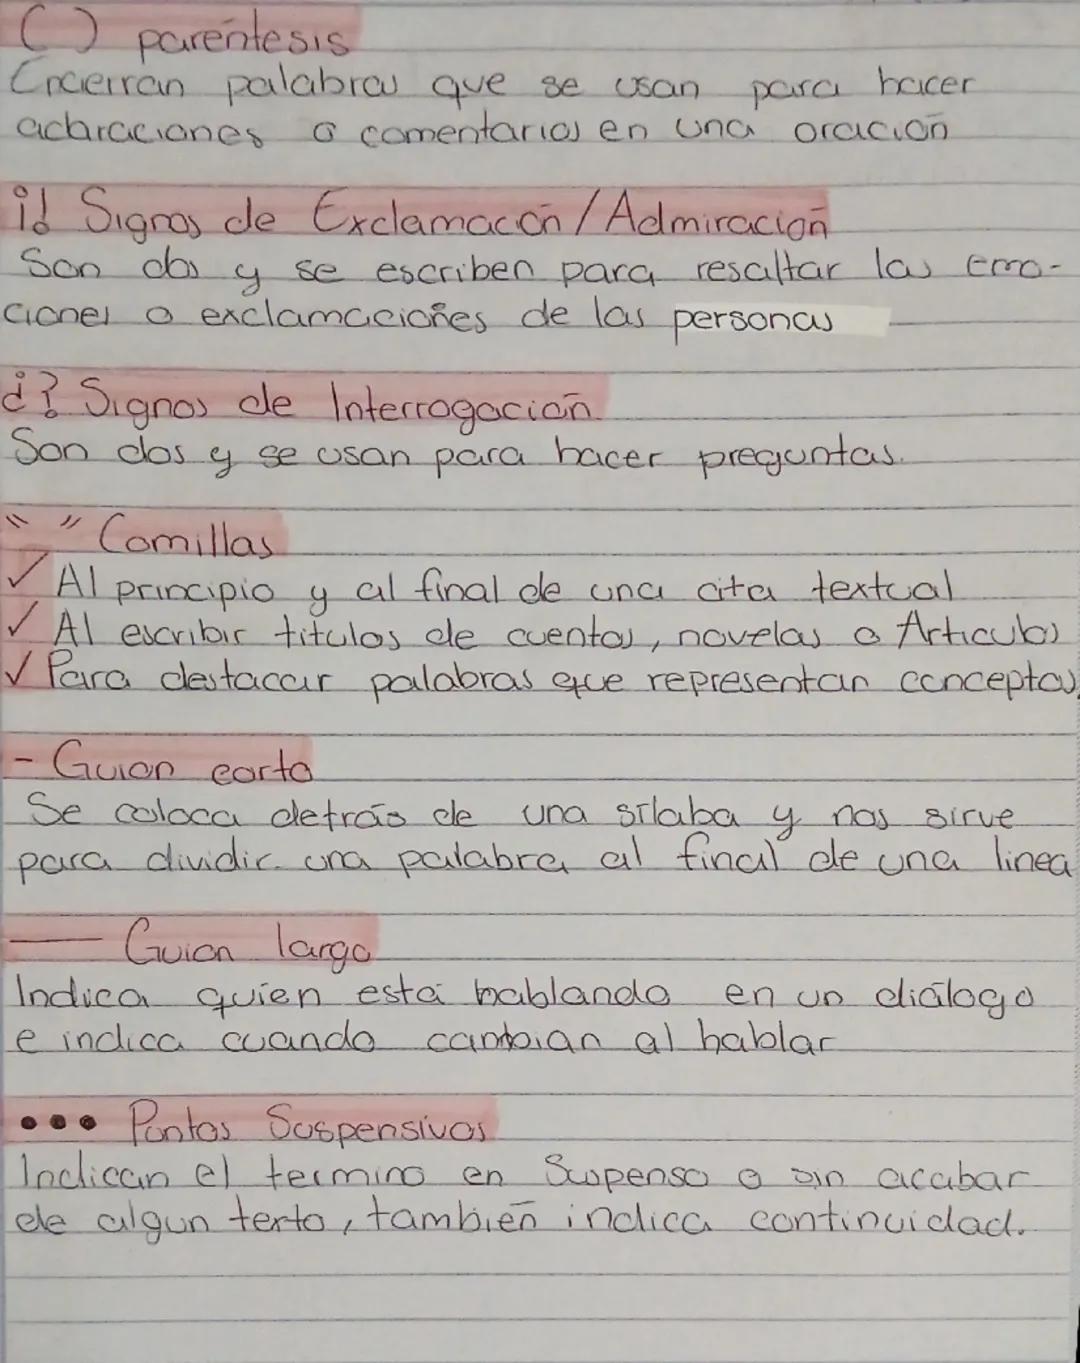 ( ) paréntesis
Encierran palabras que se usan para hacer
aclaraciones o comentarios en una oración
¡! Signos de Exclamación/Admiración
Son dos y se escriben para resaltar las emo-
ciones o exclamaciones de las personas
¿? Signos de Interrogación
Son dos y se usan para hacer preguntas.
" " Comillas
✓ Al principio y al final de una cita textual
✓ Al escribir titulos de cuentos, novelas o Articulos
✓ Para destacar palabras que representan conceptos.
- Guion corto
Se coloca detrás de una sílaba y nos sirve
para dividir una palabra al final de una linea
— Guion largo
Indica quien está hablando en un diálogo
e indica cuando cambian al hablar
••• Puntos Suspensivos
Indican el termino en Suspenso o sin acabar
de algun texto, también indica continuidad.